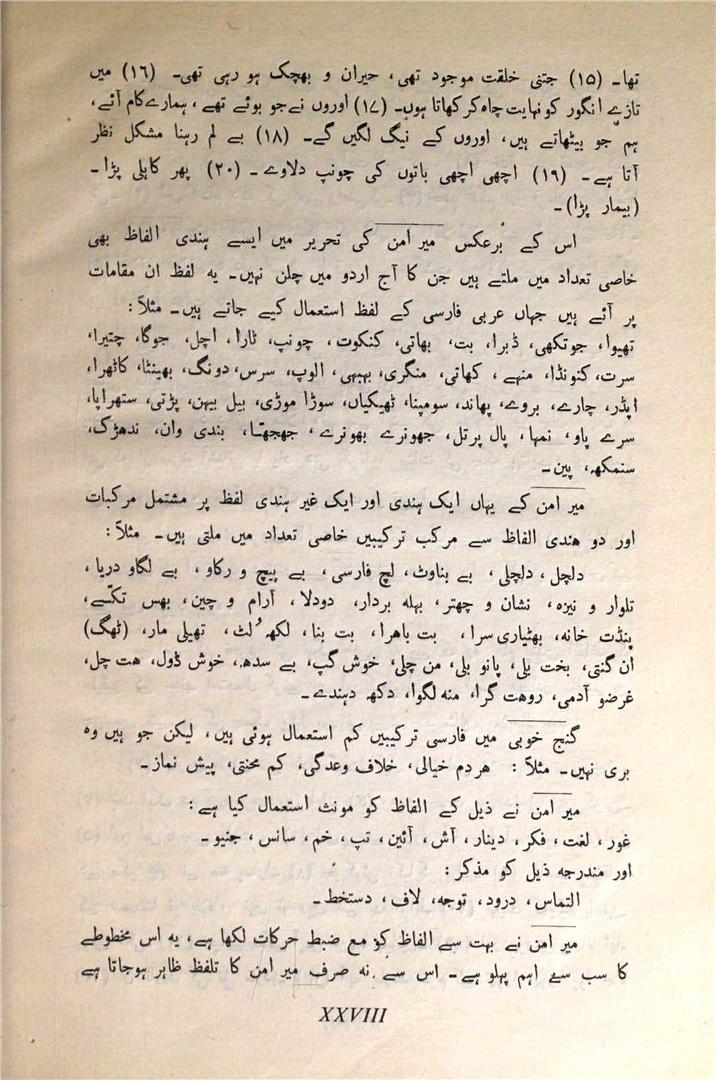 تھا۔ (۱۵) جتنی خلقت موجود تھی، حیران و بھچک ہو رہی تھی۔ (۱۶) میں
تازے انگور کو نہایت چاہ کر کھاتا ہوں۔ (۱۷) اوروں نے جو بوئے تھے، ہمارے کام آئے،
ہم جو بیٹھاتے ہیں، اوروں کے نیگ لگیں گے۔ (۱۸) بے لم رہنا مشکل نظر
آتا ہے۔ (۱۹) اچھی اچھی باتوں کی چونپ دلاوے۔ (۲۰) پھر کاہلی پڑا۔
(بیمار پڑا)۔
اس کے برعکس میر امن کی تحریر میں ایسے ہندی الفاظ بھی
خاصی تعداد میں ملتے ہیں جن کا آج اردو میں چلن نہیں۔ یہ لفظ ان مقامات
پر آئے ہیں جہاں عربی فارسی کے لفظ استعمال کیے جاتے ہیں۔ مثلاً:
تھیوا، جوتکھی، ڈبرا، بت، بھاتی، کنکوت، چونپ، ٹارا، اچل، جوگا، چتیرا،
سرت، کنونڈا، منہے، کھاتی، منگری، بہبہی، الوپ، سرس، دونگ، بھینٹا، کاٹھرا،
اپڈر، چارے، بروے، پھاند، سومپنا، ٹھیکیاں، سوڑا موڑی، بیل بیہن، پڑتی، ستھراپا،
سرے پاو، نمہا، پال پرتل، جھونرے بھونرے، جھجھتا، بندی وان، ندھڑک،
سنمکھ، پین۔
میر امن کے یہاں ایک ہندی اور ایک غیر ہندی لفظ پر مشتمل مرکبات
اور دو ہندی الفاظ سے مرکب ترکیبیں خاصی تعداد میں ملتی ہیں۔ مثلاً:
دلچل، دلچلی، بے بناوٹ، لچ فارسی، بے پیچ و رکاو، بے لگاو دریا،
تلوار و نیزہ، نشان و چھتر، بہلہ بردار، دودلا، آرام و چین، بھس تکّے،
پنڈت خانہ، بھٹیاری سرا، بت باہرا، بت بنا، لکھ لُٹ، تھیلی مار، (ٹھگ)
ان گنتی، بخت بلی، پانو بلی، من چلی، خوش گپ، بے سدھ، خوش ڈول، ہت چل،
غرضو آدمی، روہت گرا، منہ لگوا، دکھ دہندے۔
گنج خوبی میں فارسی ترکیبیں کم استعمال ہوئی ہیں، لیکن جو ہیں وہ
بری نہیں۔ مثلاً: ہردم خیالی، خلاف وعدگی، کم محنتی، پیش نماز۔
میر امن نے ذیل کے الفاظ کو مونث استعمال کیا ہے:
غور، لغت، فکر، دینار، آش، آئین، تپ، خم، سانس، جنیو۔
اور مندرجہ ذیل کو مذکر:
التماس، درود، توجہ، لاف، دستخط۔
میر امن نے بہت سے الفاظ کو مع ضبط حرکات لکھا ہے، یہ اس مخطوطے
کا سب سے اہم پہلو ہے۔ اس سے نہ صرف میر امن کا تلفظ ظاہر ہوجاتا ہے
XXVIII